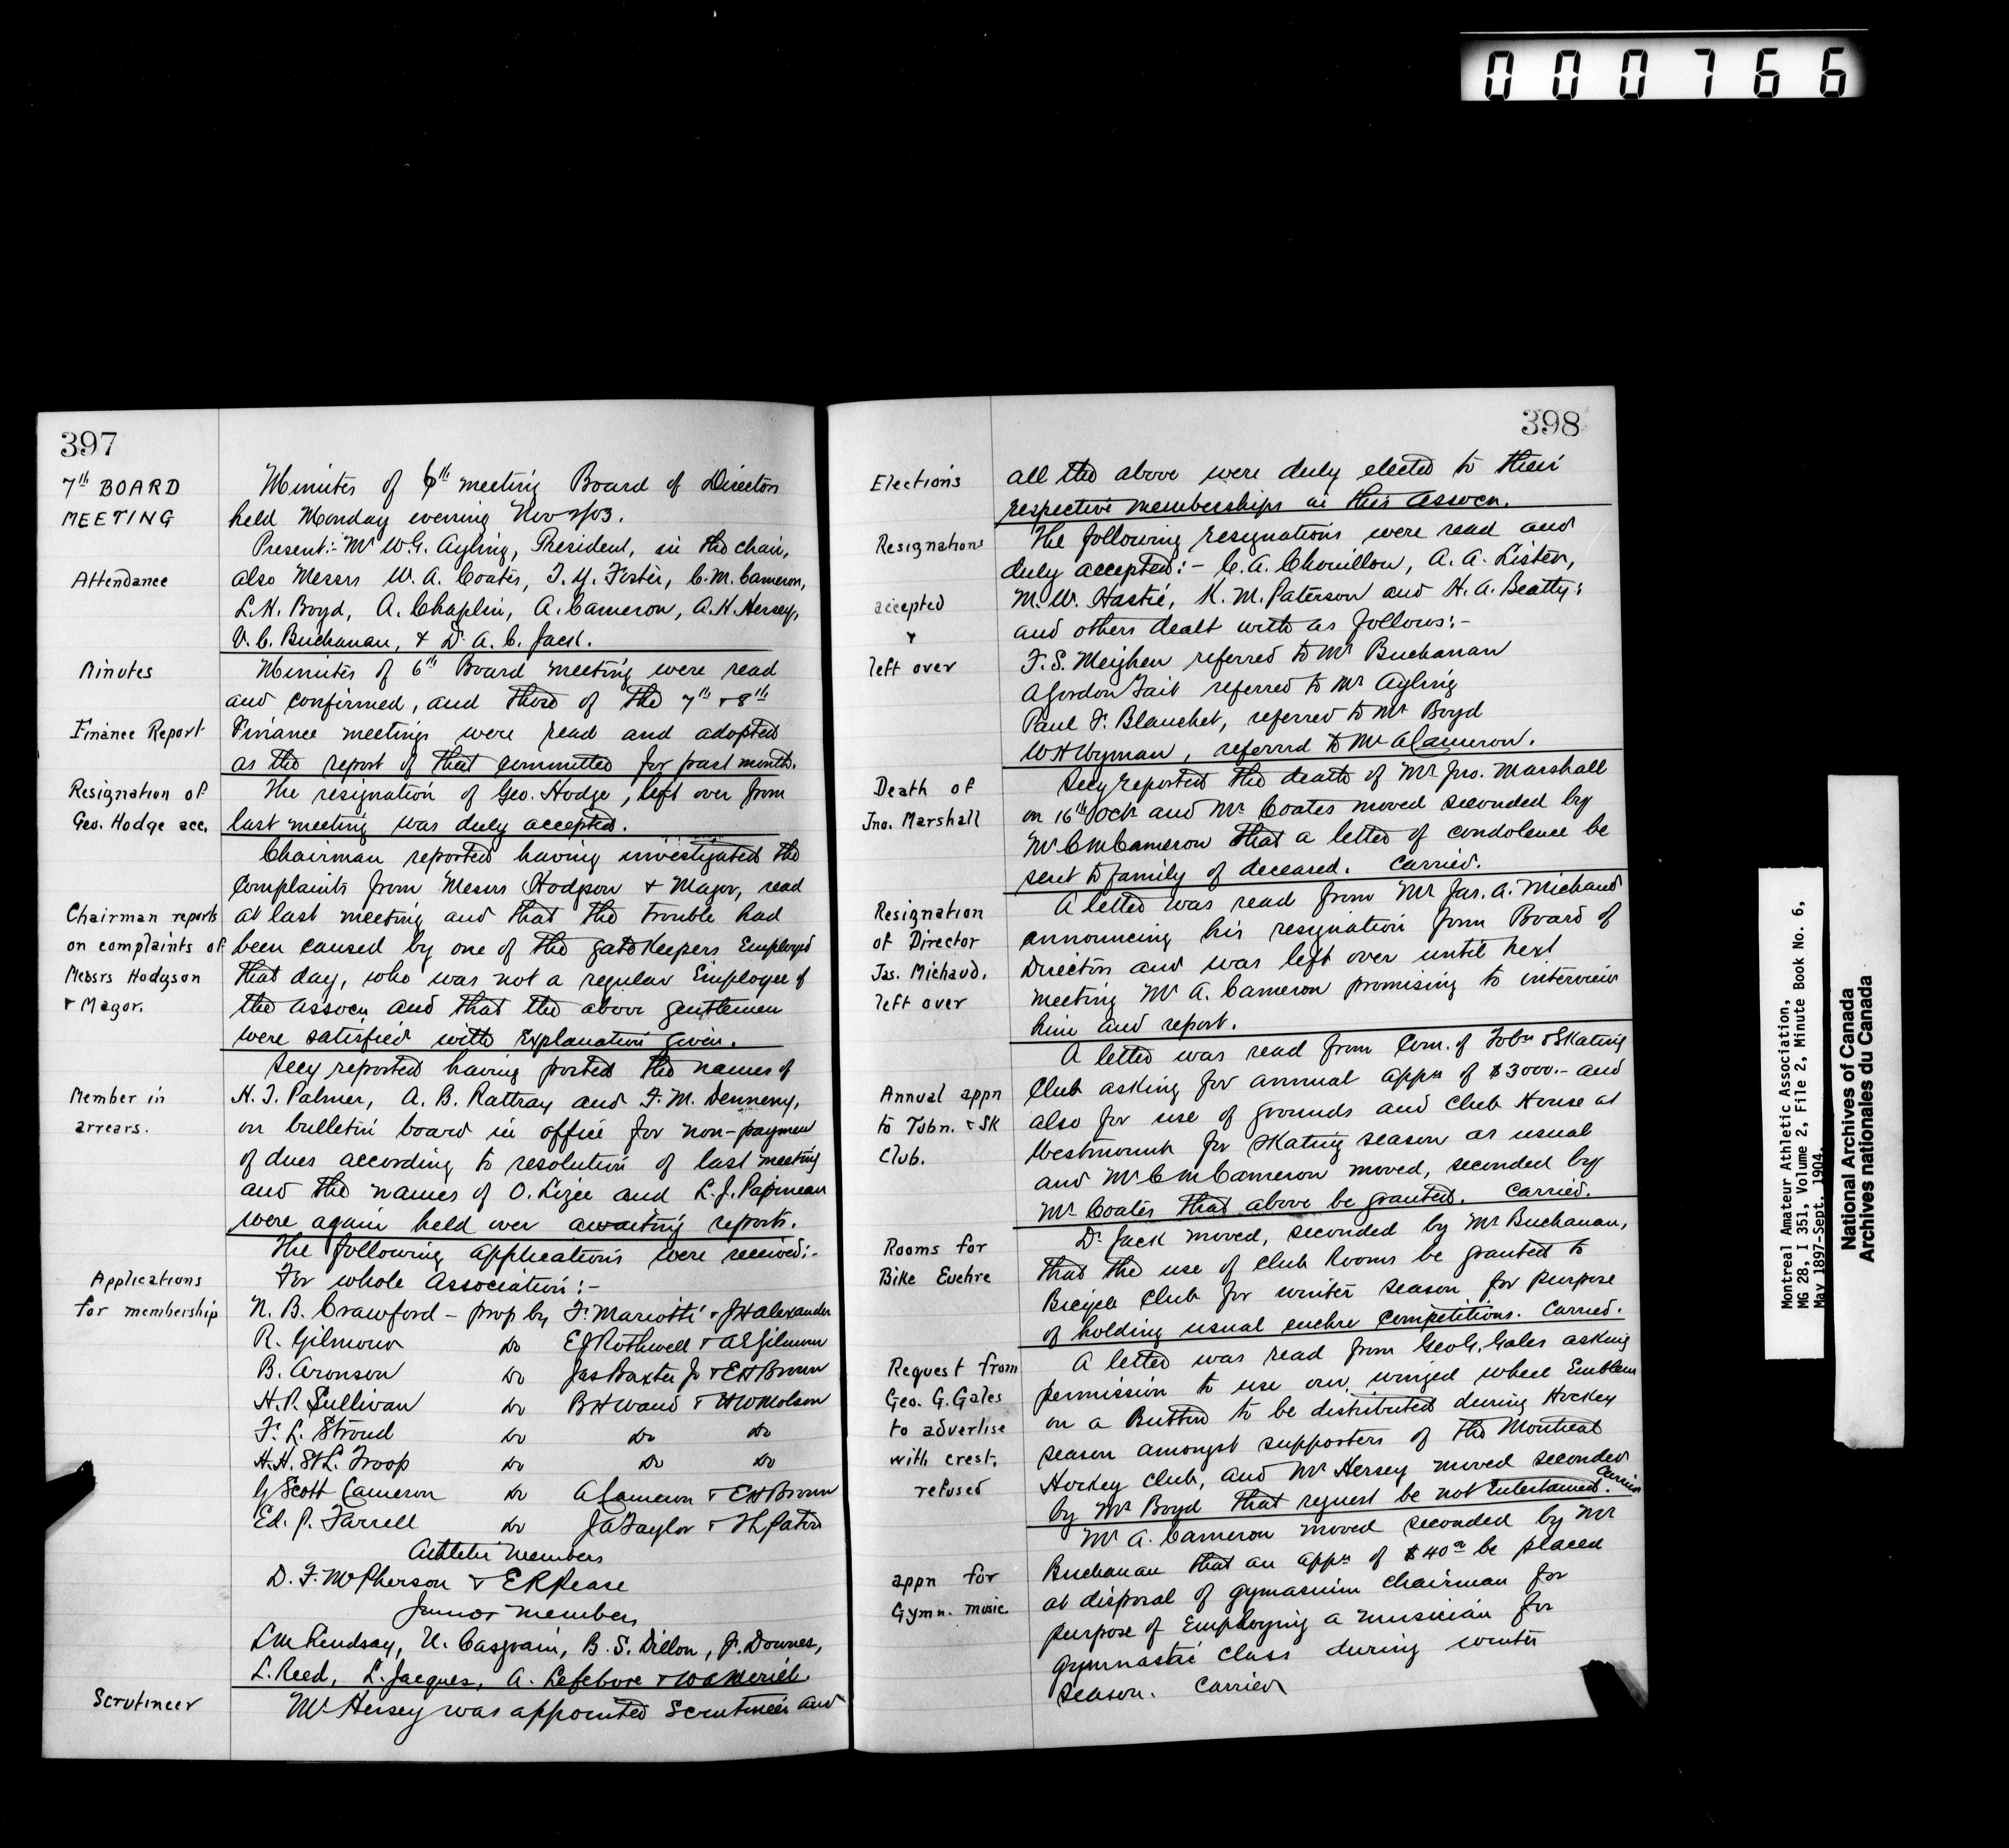 000766
397
7th BOARD
MEETING
Minutes of 6th meeting Board of Directors
held Monday evening Nov 2/03.
Present:- Mr W.G. Ayling, President, in the chair,
Attendance
also Messrs W. A. Coates, T. Y. Foster, C. M. Cameron,
L. H. Boyd, A. Chaplin, A. Cameron, A. H. Hersey,
V. C. Buchanan, & Dr A. C. Jack.
Minutes
Minutes of 6th Board meeting were read
and confirmed, and those of the 7th & 8th
Finance Report
Finance meetings were read and adopted
as the report of that committee for past month.
Resignation of
Geo. Hodge acc.
The resignation of Geo. Hodge, left over from
last meeting was duly accepted.
Chairman reported having investigated the
complaints from Messrs Hodgson & Magor, read
Chairman reports
on complaints of
Messrs Hodgson
& Magor.
at last meeting and that the trouble had
been caused by one of the gate keepers employed
that day, who was not a regular Employee of
the assocn and that the above gentlemen
were satisfied with Explanation given.
Secy reported having posted the names of
Member in
arrears.
H. T. Palmer, A. B. Rattray and F. M. Denneny,
on bulletin board in office for non-paymen
of dues according to resolution of last meeting
and the names of O. Lizee and L. J. Papineau
were again held over awaiting reports.
The following applications were received:-
Applications
for membership
For whole Association:-
N. B. Crawford - prop by F. Mariotti & J H Alexander
R. Gilmour do E J Rothwell & A E Gilmour
B. Aronson do Jas Baxter Jr & E H Brown
H. P. Sullivan do B H Wand & H W Molson
F. L. Stroud do do do
H. H. St L. Troop do do do
G Scott Cameron do A Cameron & E H Brown
Ed. P. Farrell do J A Taylor & T L Paton
Athletic Members
D. F. McPherson & E R Pease
Junior members
L M Lindsay, U. Casgrain, B. S. Dillon, J. Downes,
L. Reed, L. Jacques, A. Lefebvre &
Scrutineer
Mr Hersey was appointed Scrutineer and
398
Elections
all the above were duly elected to their
respective memberships in this Assocn.
Resignations
accepted
&
left over
The following resignations were read and
duly accepted:- C. A. Chouillou, A. A. Lister,
M. W. Hastie, K. M. Paterson and H. A. Beatty;
and others dealt with as follows:-
F. S. Meighen referred to Mr Buchanan
A Gordon Tait referred to Mr Ayling
Paul F. Blanchet, referred to Mr Boyd
W H Wyman, referred to Mr A Cameron.
Death of
Jno. Marshall
Secy reported the death of Mr Jno. Marshall
on 16th Oct and Mr Coates moved seconded by
Mr C M Cameron that a letter of condolence be
sent to family of deceased. Carried.
Resignation
of Director
Jas. Michaud.
left over
A letter was read from Mr Jas. A. Michaud
announcing his resignation from Board of
Directors and was left over until next
meeting Mr A. Cameron promising to interview
him and report.
A letter was read from Com. of Tobn & Skating
Annual appn
to Tobn. & SK
Club.
Club asking for annual appn of $3000.- and
also for use of grounds and Club House at
Westmount for skating season as usual
and Mr C M Cameron moved, seconded by
Mr Coates that above be granted. Carried.
Rooms for
Bike Euchre
Dr Jack moved, seconded by Mr Buchanan,
that the use of Club Rooms be granted to
Bicycle Club for winter season for purpose
of holding usual euchre competitions. Carried.
Request from
Geo. G. Gales
to advertise
with crest,
refused
A letter was read from Geo G. Gales asking
permission to use our winged wheel Emblem
on a Button to be distributed during Hockey
season amongst supporters of the Montreal
Hockey Club, and Mr Hersey moved seconded
by Mr Boyd that request be not Entertained. Carried
Mr A. Cameron moved seconded by Mr
appn for
Gymn. music.
Buchanan that an appn of $40 be placed
at disposal of gymnasium Chairman for
purpose of Employing a musician for
gymnastic class during winter
season. Carried
Montreal Amateur Athletic Association,
MG 28, I 351, Volume 2, File 2, Minute Book No. 6,
May 1897-Sept. 1904.
National Archives of Canada
Archives nationales du Canada